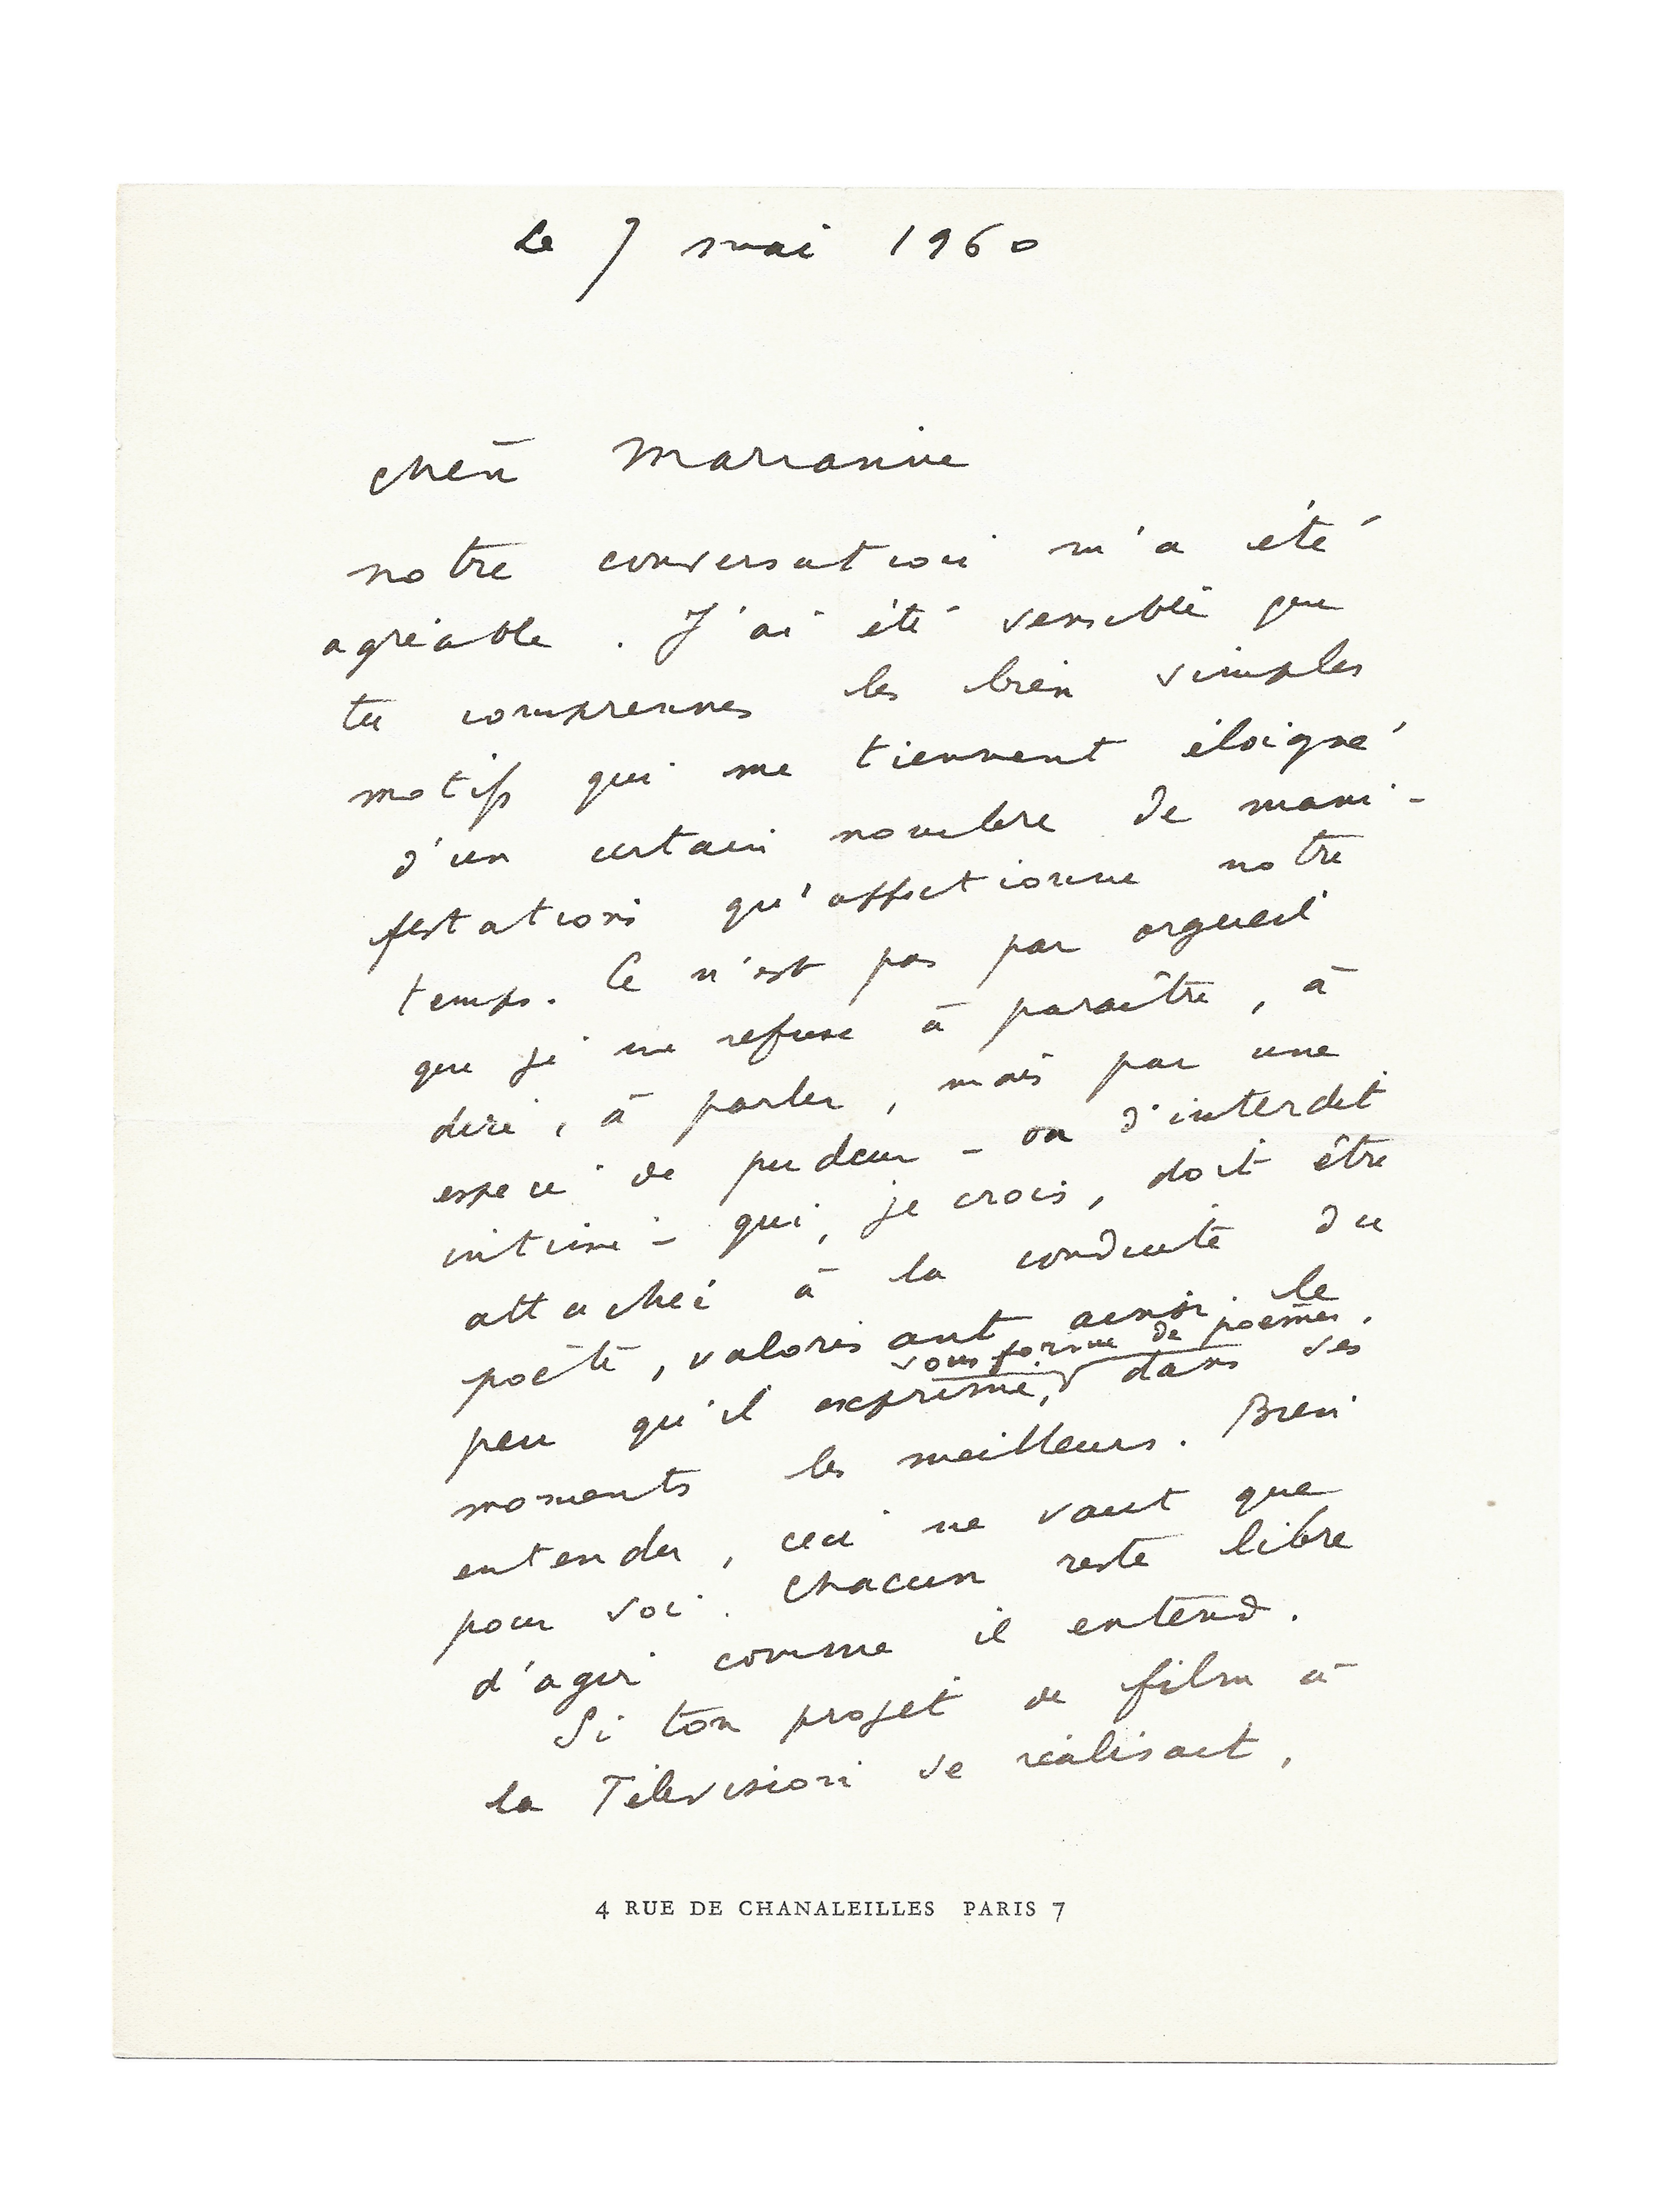 Le 7 mai 1960
chère Marianne
notre conversation m'a été
agréable. J'ai été sensible que
tu comprennes les bien simples
motifs qui me tiennent éloigné
d'un certain nombre de mani-
festations qu'affectionne notre
temps. Ce n'est pas par orgueil
que je me refuse à paraître, à
dire, à parler, mais par une
espèce de pudeur - ou d'interdit
intime - qui, je crois, doit être
attaché à la conduite du
poète, valorisant ainsi le
sous forme de poèmes,
peu qu'il exprime, dans ses
moments les meilleurs. Bien
entendu, ceci ne vaut que
pour soi. Chacun reste libre
d'agir comme il entend.
Si ton projet de film à
la Télévision se réalisait,
4 RUE DE CHANALEILLES PARIS 7